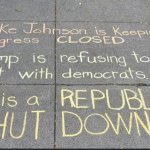 ke Johnson is Keepin
gress CLOSED
mp is refusing to
t with democrats.
is a REPUBL
HUT DOWN